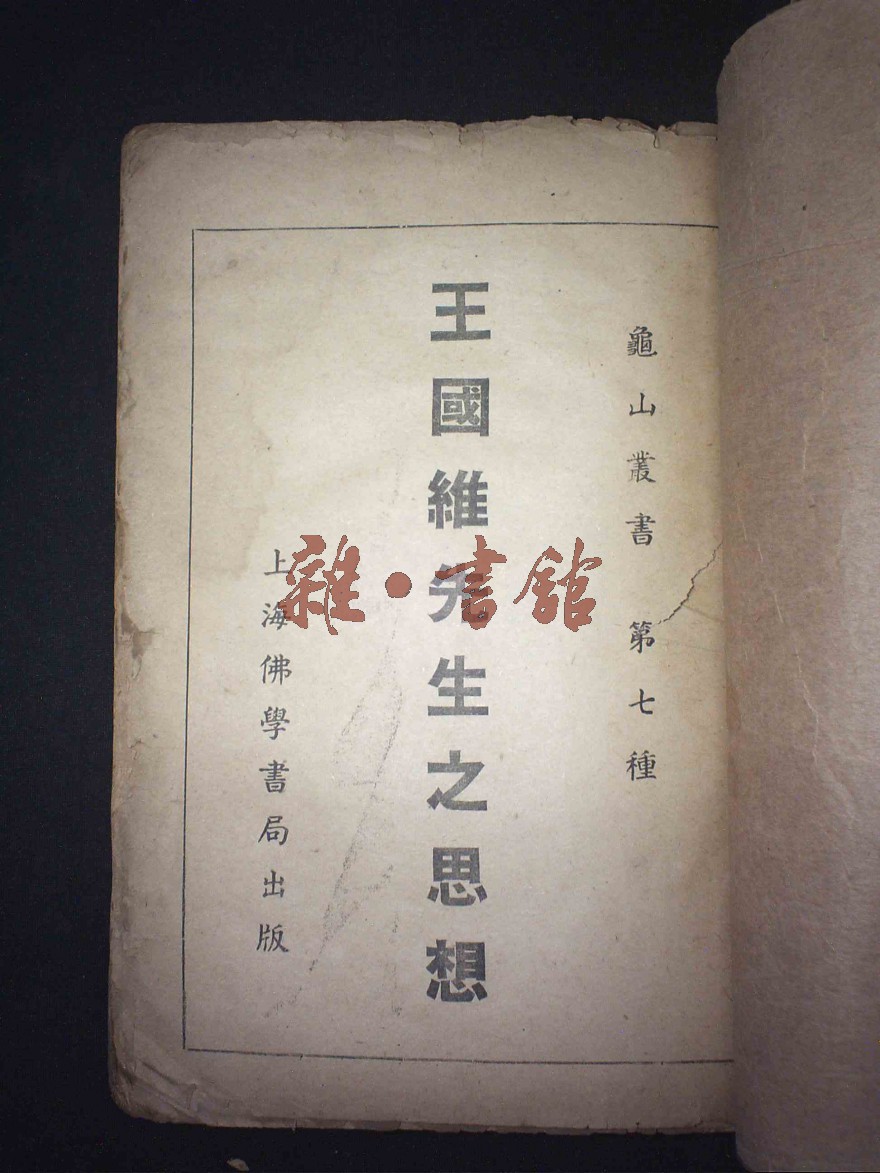 龜山叢書 第七種
王國維先生之思想
上海佛學書局出版
雜·書館